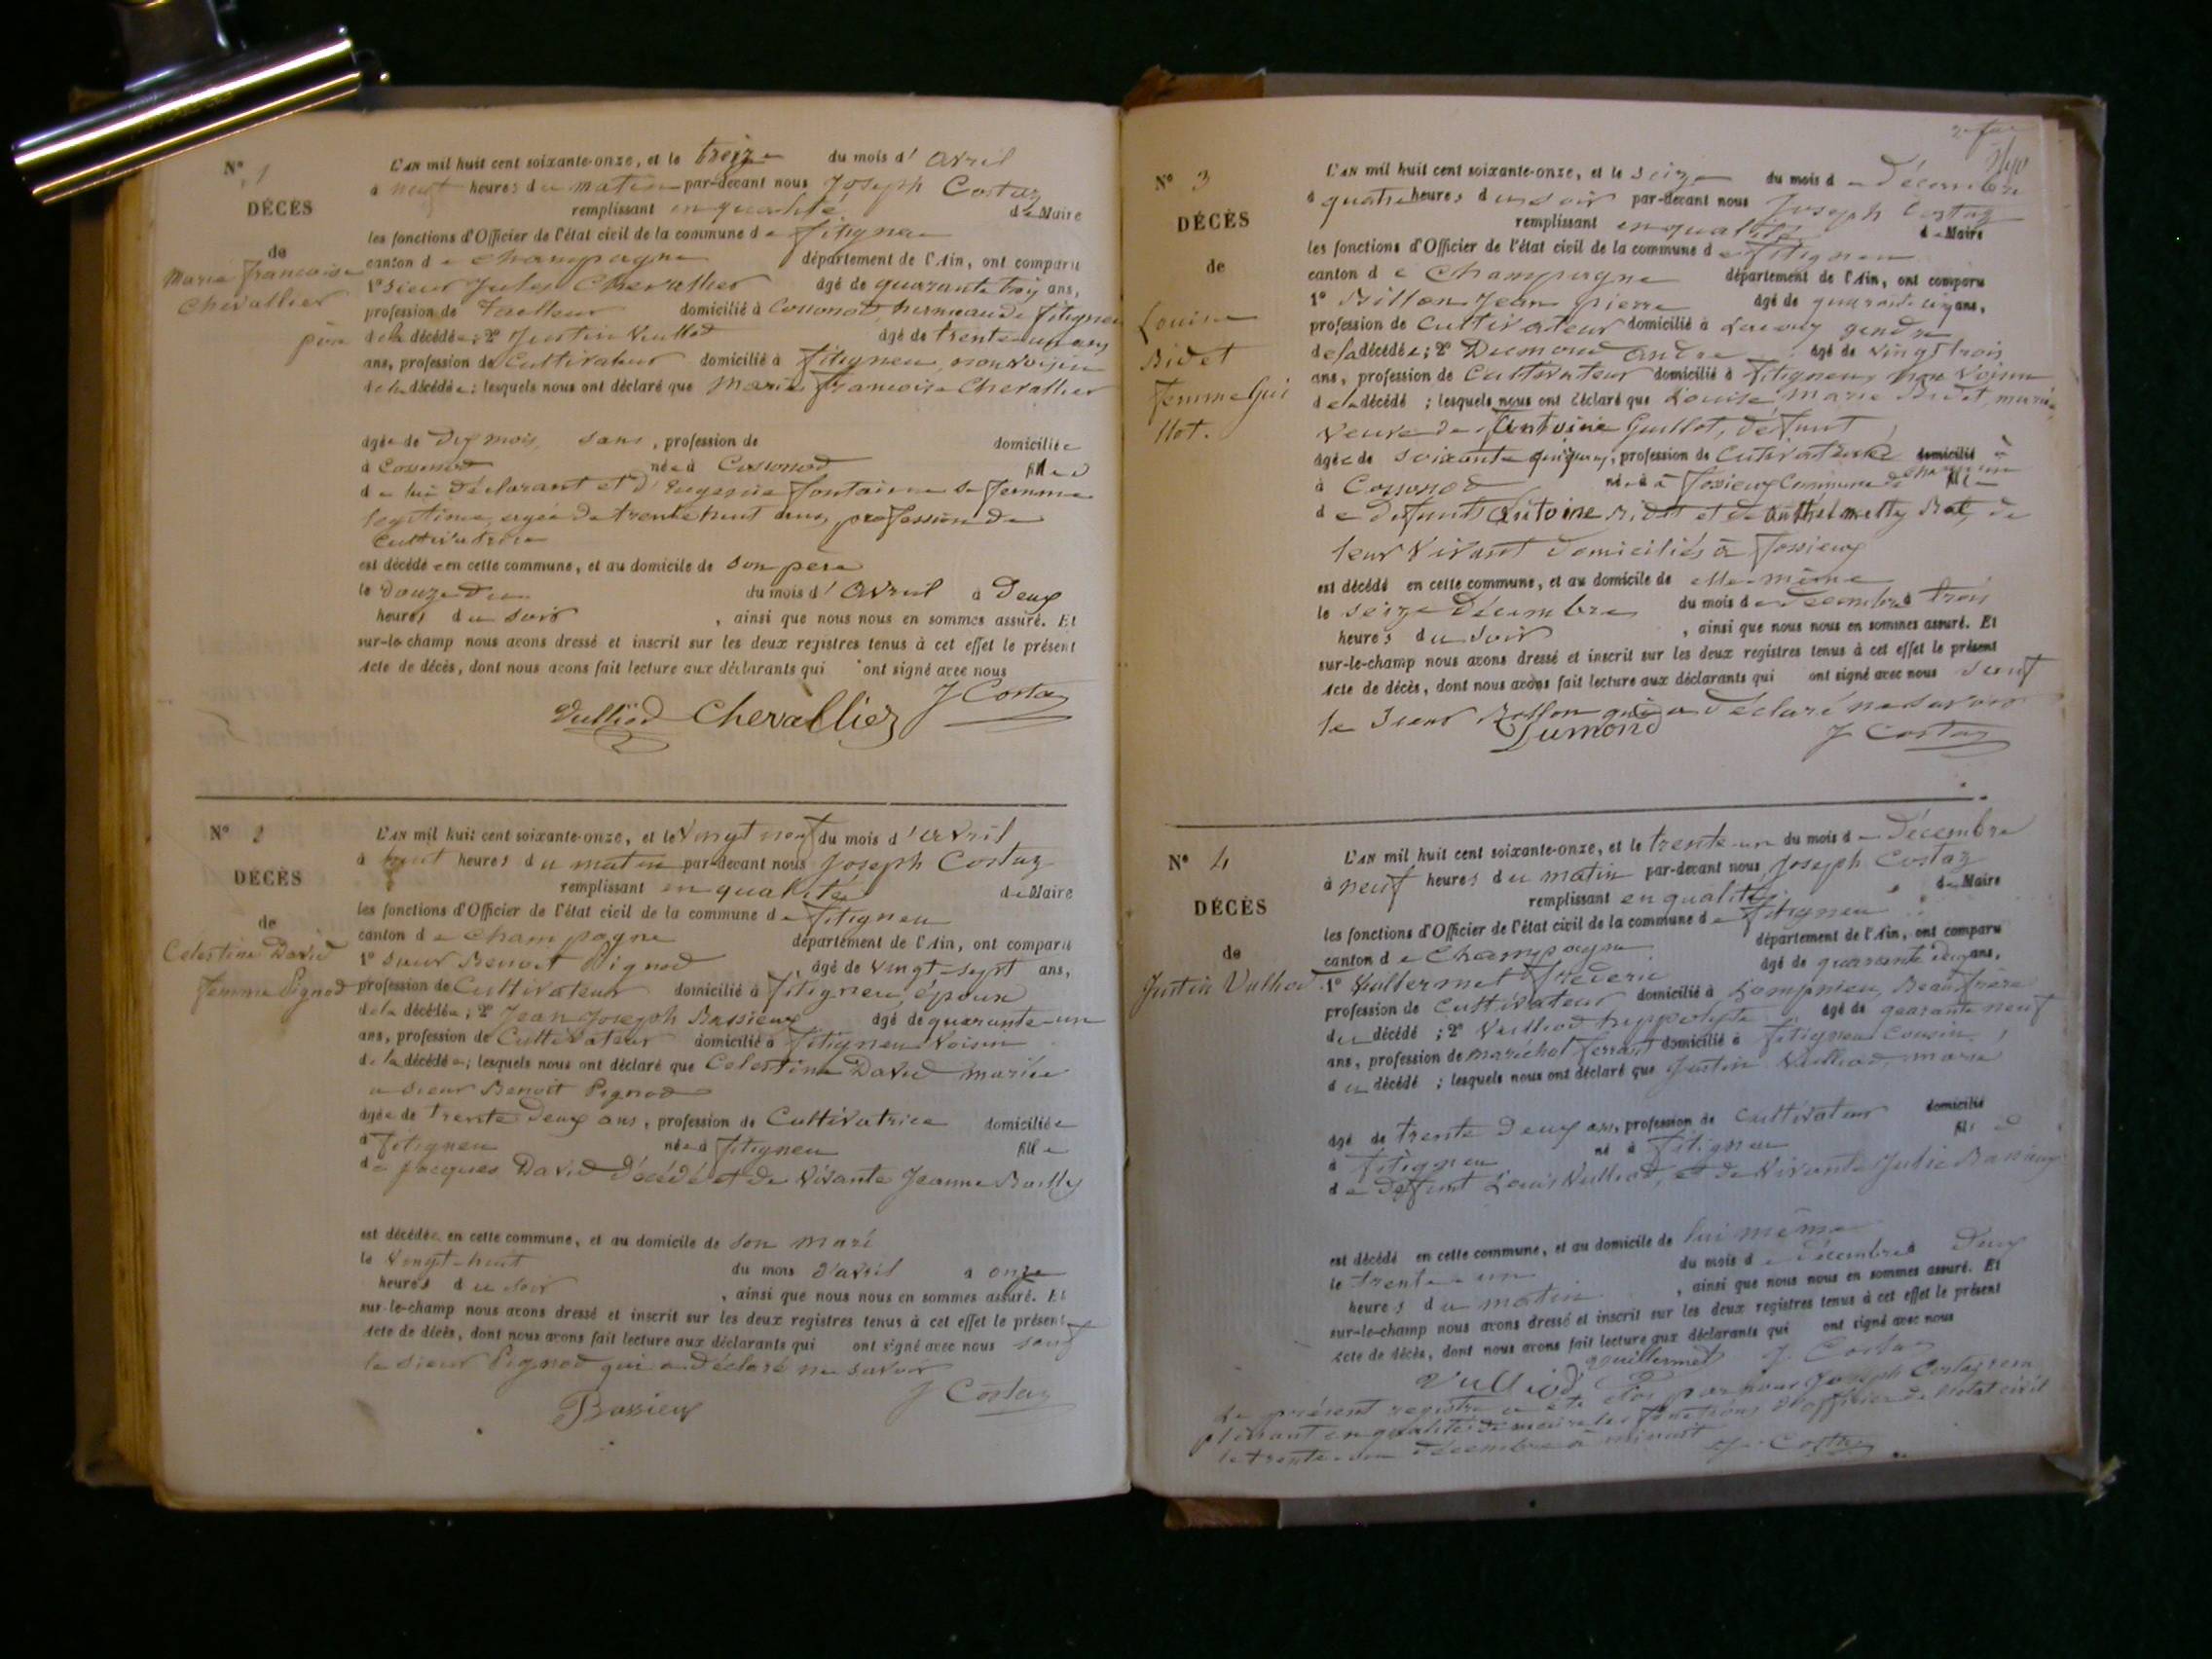 N° 1
DÉCÈS
de
Marie françoise
Chevallier
L'AN mil huit cent soixante-onze, et le treize du mois d' avril
à neuf heures du matin par-devant nous Joseph Costaz
remplissant en qualité de Maire
les fonctions d'Officier de l'état civil de la commune de fitigneu
canton de Champagne département de l'Ain, ont comparu
1° sieur Jules Chevallier âgé de quarante trois ans,
profession de Tailleur domicilié à Cossonod, hameau de fitigneu
père de la décédée; 2° Justin Vulliod âgé de trente-un ans
ans, profession de Cultivateur domicilié à fitigneu, non voisin
de la décédée; lesquels nous ont déclaré que Marie françoise Chevallier
âgée de Dix mois, sans, profession de domiciliée
à Cossonod née à Cossonod fille
de lui Déclarant et d' Eugenie fontaine sa femme
legitime, agée de trente huit ans, profession de
Cultivatrice
est décédée en cette commune, et au domicile de son père
le Douze Du du mois d' avril à Deux
heures du soir, ainsi que nous nous en sommes assuré. Et
sur-le-champ nous avons dressé et inscrit sur les deux registres tenus à cet effet le présent
Acte de décès, dont nous avons fait lecture aux déclarants qui ont signé avec nous
Vulliod Chevallier J Costaz
N° 2
DÉCÈS
de
Celestine David
femme Pignod
L'AN mil huit cent soixante-onze, et le Vingt neuf du mois d' avril
à huit heures du matin par-devant nous Joseph Costaz
remplissant en qualité de Maire
les fonctions d'Officier de l'état civil de la commune de fitigneu
canton de Champagne département de l'Ain, ont comparu
1° sieur Benoit Pignod, âgé de Vingt-sept ans,
profession de Cultivateur domicilié à fitigneu, époux
de la décédée; 2° Jean Joseph Bassieux âgé de quarante-un
ans, profession de Cultivateur domicilié à fitigneu Voisin
de la décédée; lesquels nous ont déclaré que Celestine David mariée
a sieur Benoit Pignod
âgée de trente Deux ans, profession de Cultivatrice domiciliée
à fitigneu née à fitigneu fille
de Jacques David Décédé et de Vivante Jeanne Bailly
est décédée en cette commune, et au domicile de son mari
le Vingt-huit du mois d'avril à onze
heures du soir, ainsi que nous nous en sommes assuré. Et
sur-le-champ nous avons dressé et inscrit sur les deux registres tenus à cet effet le présent
Acte de décès, dont nous avons fait lecture aux déclarants qui ont signé avec nous sauf
le sieur Pignod qui a Déclaré ne savoir
Bassieux J Costaz
N° 3
DÉCÈS
de
Louise
Bidet
femme Guil
llot.
L'AN mil huit cent soixante-onze, et le seize du mois de Décembre
à quatre heures du soir par-devant nous Joseph Costaz
remplissant en qualité de Maire
les fonctions d'Officier de l'état civil de la commune de fitigneu
canton de Champagne département de l'Ain, ont comparu
1° Billon Jean pierre âgé de quarante cinq ans,
profession de Cultivateur domicilié à gendre
de la décédée; 2° Dumond andré âgé de vingt trois
ans, profession de Cultivateur domicilié à fitigneu, non Voisin
de la décédé; lesquels nous ont déclaré que Louise Marie Bidet, mariée
Veuve de Antoine Guillot, défunt
âgée de soixante quinze ans, profession de Cultivatrice domicilié
à Cossonod née à fossieux Commune de fille
de Defunts Antoine Bidet et de Anthelmette Bal, de
leur Vivant Domiciliés à fossieux
est décédé en cette commune, et au domicile de elle-même
le seize Décembre du mois de Décembre à trois
heures du soir, ainsi que nous nous en sommes assuré. Et
sur-le-champ nous avons dressé et inscrit sur les deux registres tenus à cet effet le présent
Acte de décès, dont nous avons fait lecture aux déclarants qui ont signé avec nous sauf
le sieur Billon qui a Déclaré ne savoir
Dumond J Costaz
N° 4
DÉCÈS
de
Justin Vulliod
L'AN mil huit cent soixante-onze, et le trente-un du mois de Décembre
à neuf heures du matin par-devant nous Joseph Costaz
remplissant en qualité de Maire
les fonctions d'Officier de l'état civil de la commune de fitigneu
canton de Champagne département de l'Ain, ont comparu
1° Guillermet frédéric âgé de quarante Deux ans,
profession de Cultivateur domicilié à Lompnieu, Beau frère
du décédé; 2° Vulliod hyppolyte âgé de quarante neuf
ans, profession de maréchal ferrant domicilié à fitigneu Cousin
du décédé; lesquels nous ont déclaré que Justin Vulliod, marié
âgé de trente Deux ans, profession de Cultivateur domicilié
à fitigneu né à fitigneu fils
de Defunt Louis Vulliod, et de Vivante Julie
est décédé en cette commune, et au domicile de lui même
le trente-un du mois de Décembre à Deux
heures du matin, ainsi que nous nous en sommes assuré. Et
sur-le-champ nous avons dressé et inscrit sur les deux registres tenus à cet effet le présent
Acte de décès, dont nous avons fait lecture aux déclarants qui ont signé avec nous
Vulliod guillermet J. Costaz
Le présent registre a été clos par nous Joseph Costaz rem
plissant en qualité de maire les fonctions d'officier de l'état civil
le trente-un Décembre à minuit
J. Costaz